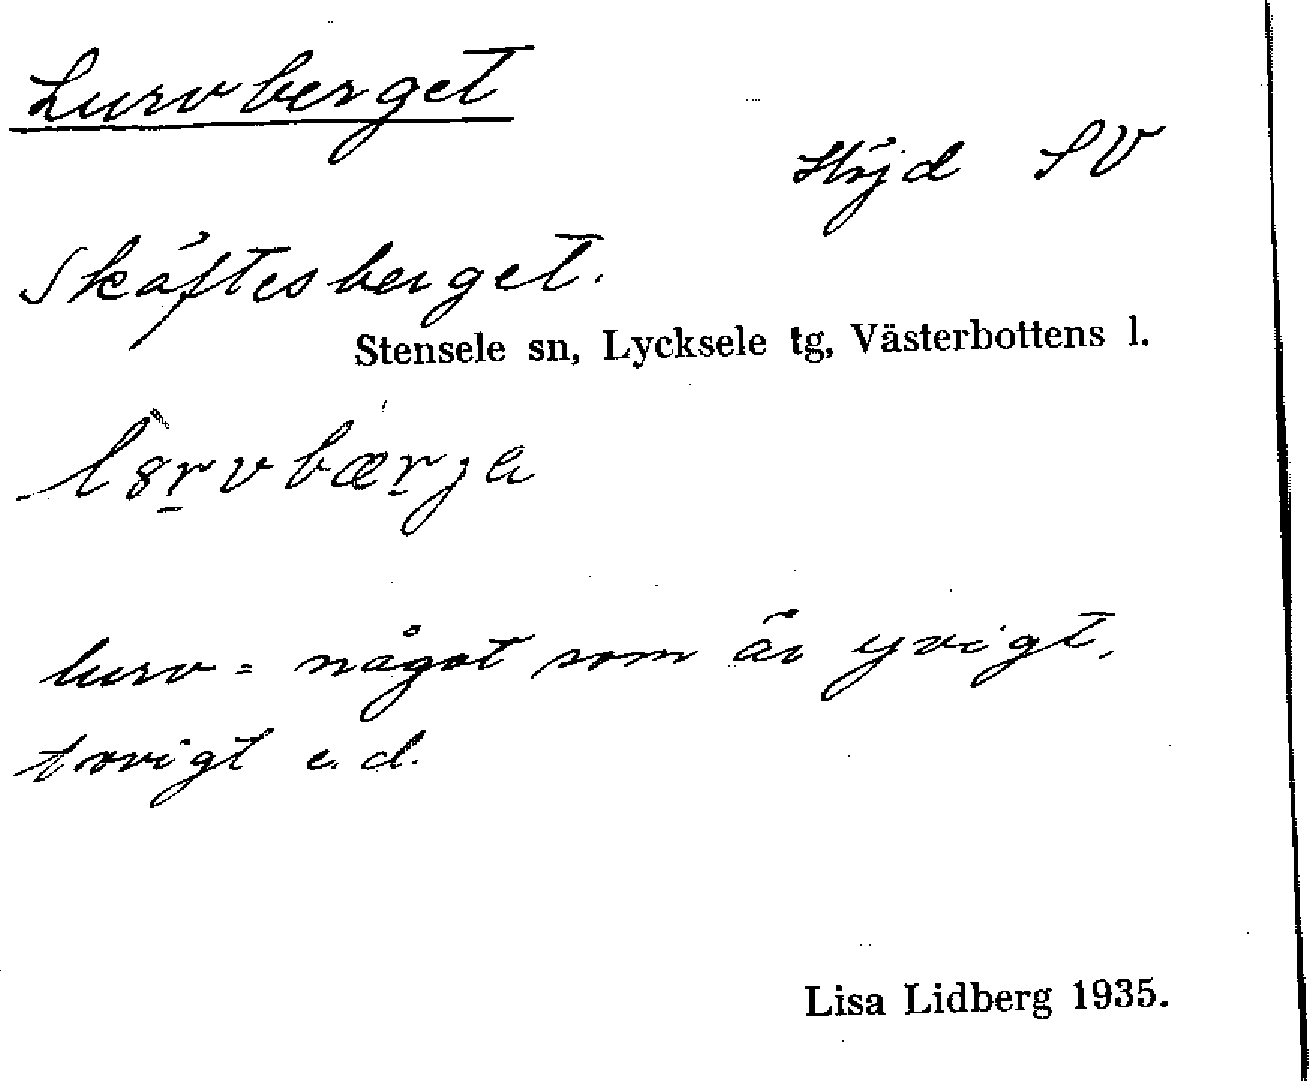 Lurvberget
Höjd SV
Skäftesberget.
Stensele sn, Lycksele tg, Västerbottens l.
lurv = något som är yvigt,
tovigt e. d.
Lisa Lidberg 1935.